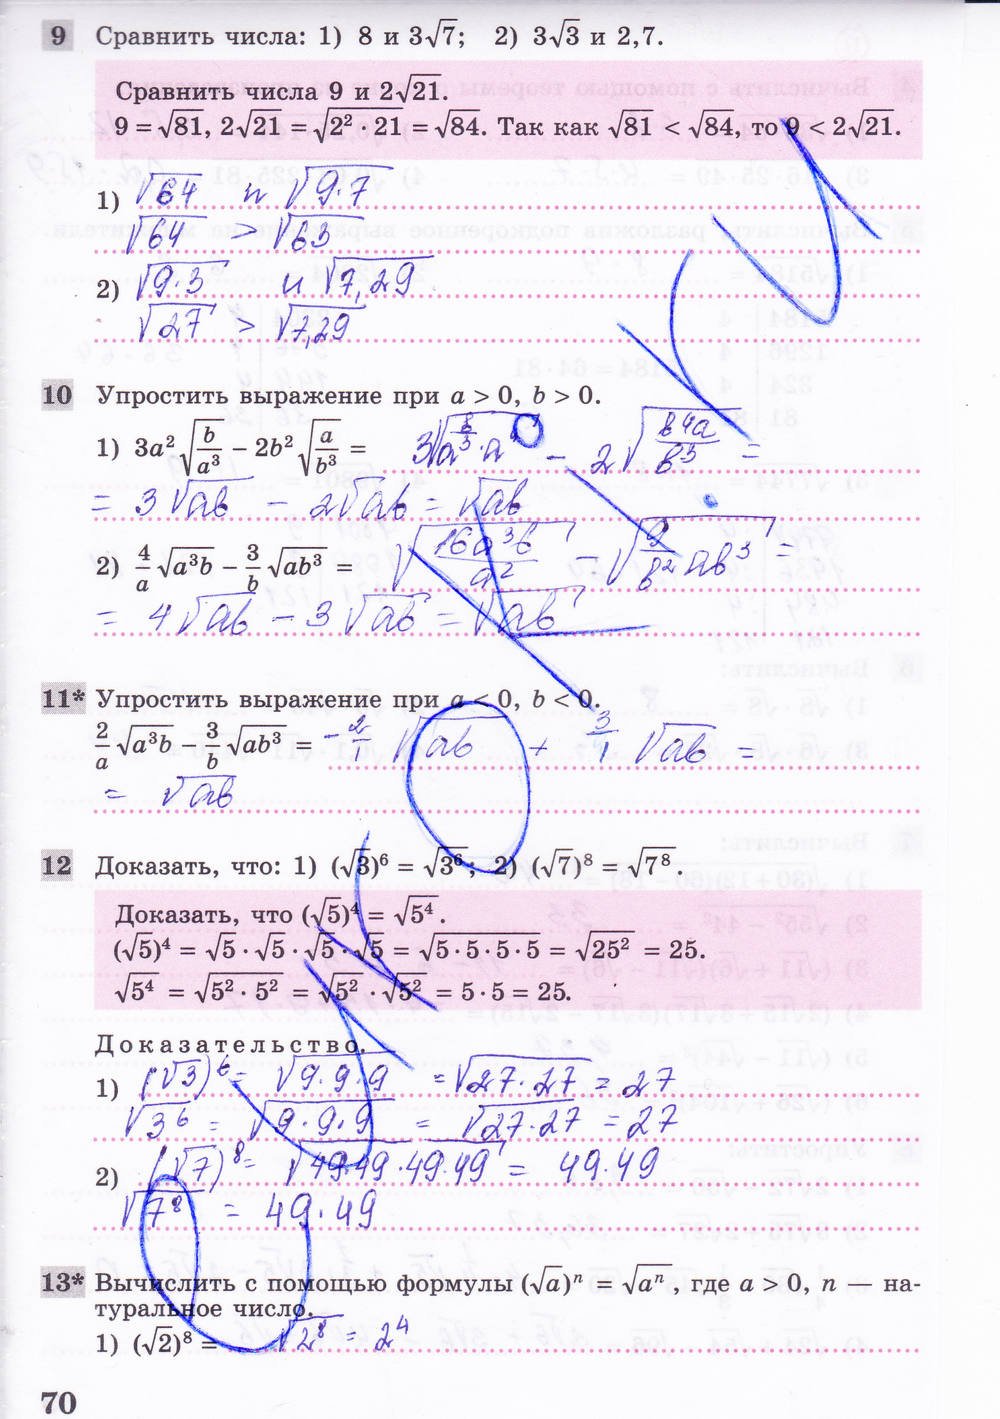 9 Сравнить числа: 1) 8 и 3√7; 2) 3√3 и 2,7.
Сравнить числа 9 и 2√21.
9 = √81, 2√21 = √(2² · 21) = √84. Так как √81 < √84, то 9 < 2√21.
1) √64 и √(9·7)
√64 > √63
2) √(9·3) и √7,29
√27 > √7,29
10 Упростить выражение при a > 0, b > 0.
1) 3a² √(b/a³) − 2b² √(a/b³) = 3√(b/a³ · a⁴) − 2√(b⁴a/b³) =
= 3√ab − 2√ab = √ab
2) 4/a √(a³b) − 3/b √(ab³) = √(16a³b/a²) − √(9/b² ab³) =
= 4√ab − 3√ab = √ab
11* Упростить выражение при a < 0, b < 0.
2/a √(a³b) − 3/b √(ab³) = − 2/1 √ab + 3/1 √ab =
= √ab
12 Доказать, что: 1) (√3)⁶ = √(3⁶); 2) (√7)⁸ = √(7⁸).
Доказать, что (√5)⁴ = √(5⁴).
(√5)⁴ = √5 · √5 · √5 · √5 = √(5 · 5 · 5 · 5) = √(25²) = 25.
√(5⁴) = √(5² · 5²) = √(5²) · √(5²) = 5 · 5 = 25.
Доказательство.
1) (√3)⁶ = √(9·9·9) = √(27·27) = 27
√(3⁶) = √(9·9·9) = √(27·27) = 27
2) (√7)⁸ = √(49·49·49·49) = 49·49
√(7⁸) = 49·49
13* Вычислить с помощью формулы (√a)ⁿ = √(aⁿ), где a > 0, n — на-
туральное число.
1) (√2)⁸ = √(2⁸) = 2⁴
70